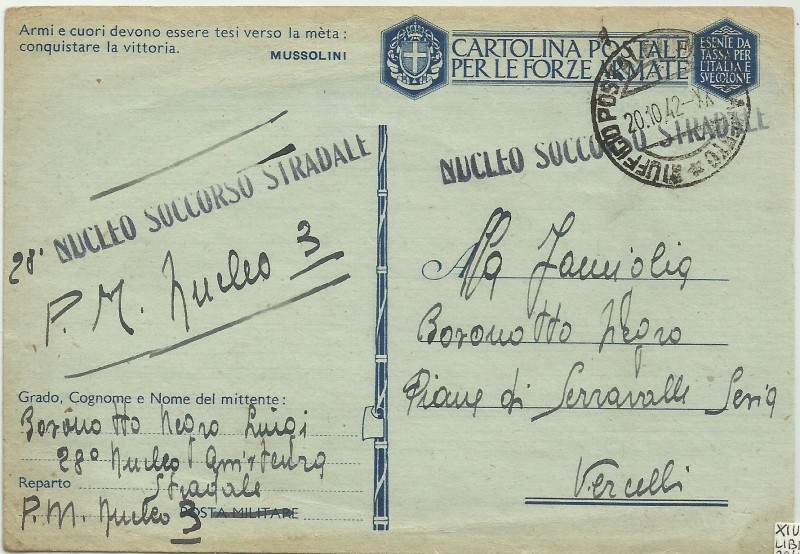 Armi e cuori devono essere tesi verso la mèta:
conquistare la vittoria.
MUSSOLINI
CARTOLINA POSTALE
PER LE FORZE ARMATE
ESENTE DA
TASSA PER
L'ITALIA E
SUE COLONIE
UFFICIO POSTALE
20.10.42-XX
NUCLEO SOCCORSO STRADALE
28° NUCLEO SOCCORSO STRADALE
P.M. Nucleo 3
Alla Famiglia
Boronotto Negro
Piane di Serravalle Sesia
Vercelli
Grado, Cognome e Nome del mittente:
Boronotto Negro Luigi
28° Nucleo Assistenza
Reparto Stradale
P.M. Nucleo 3
POSTA MILITARE
XIU
LIB